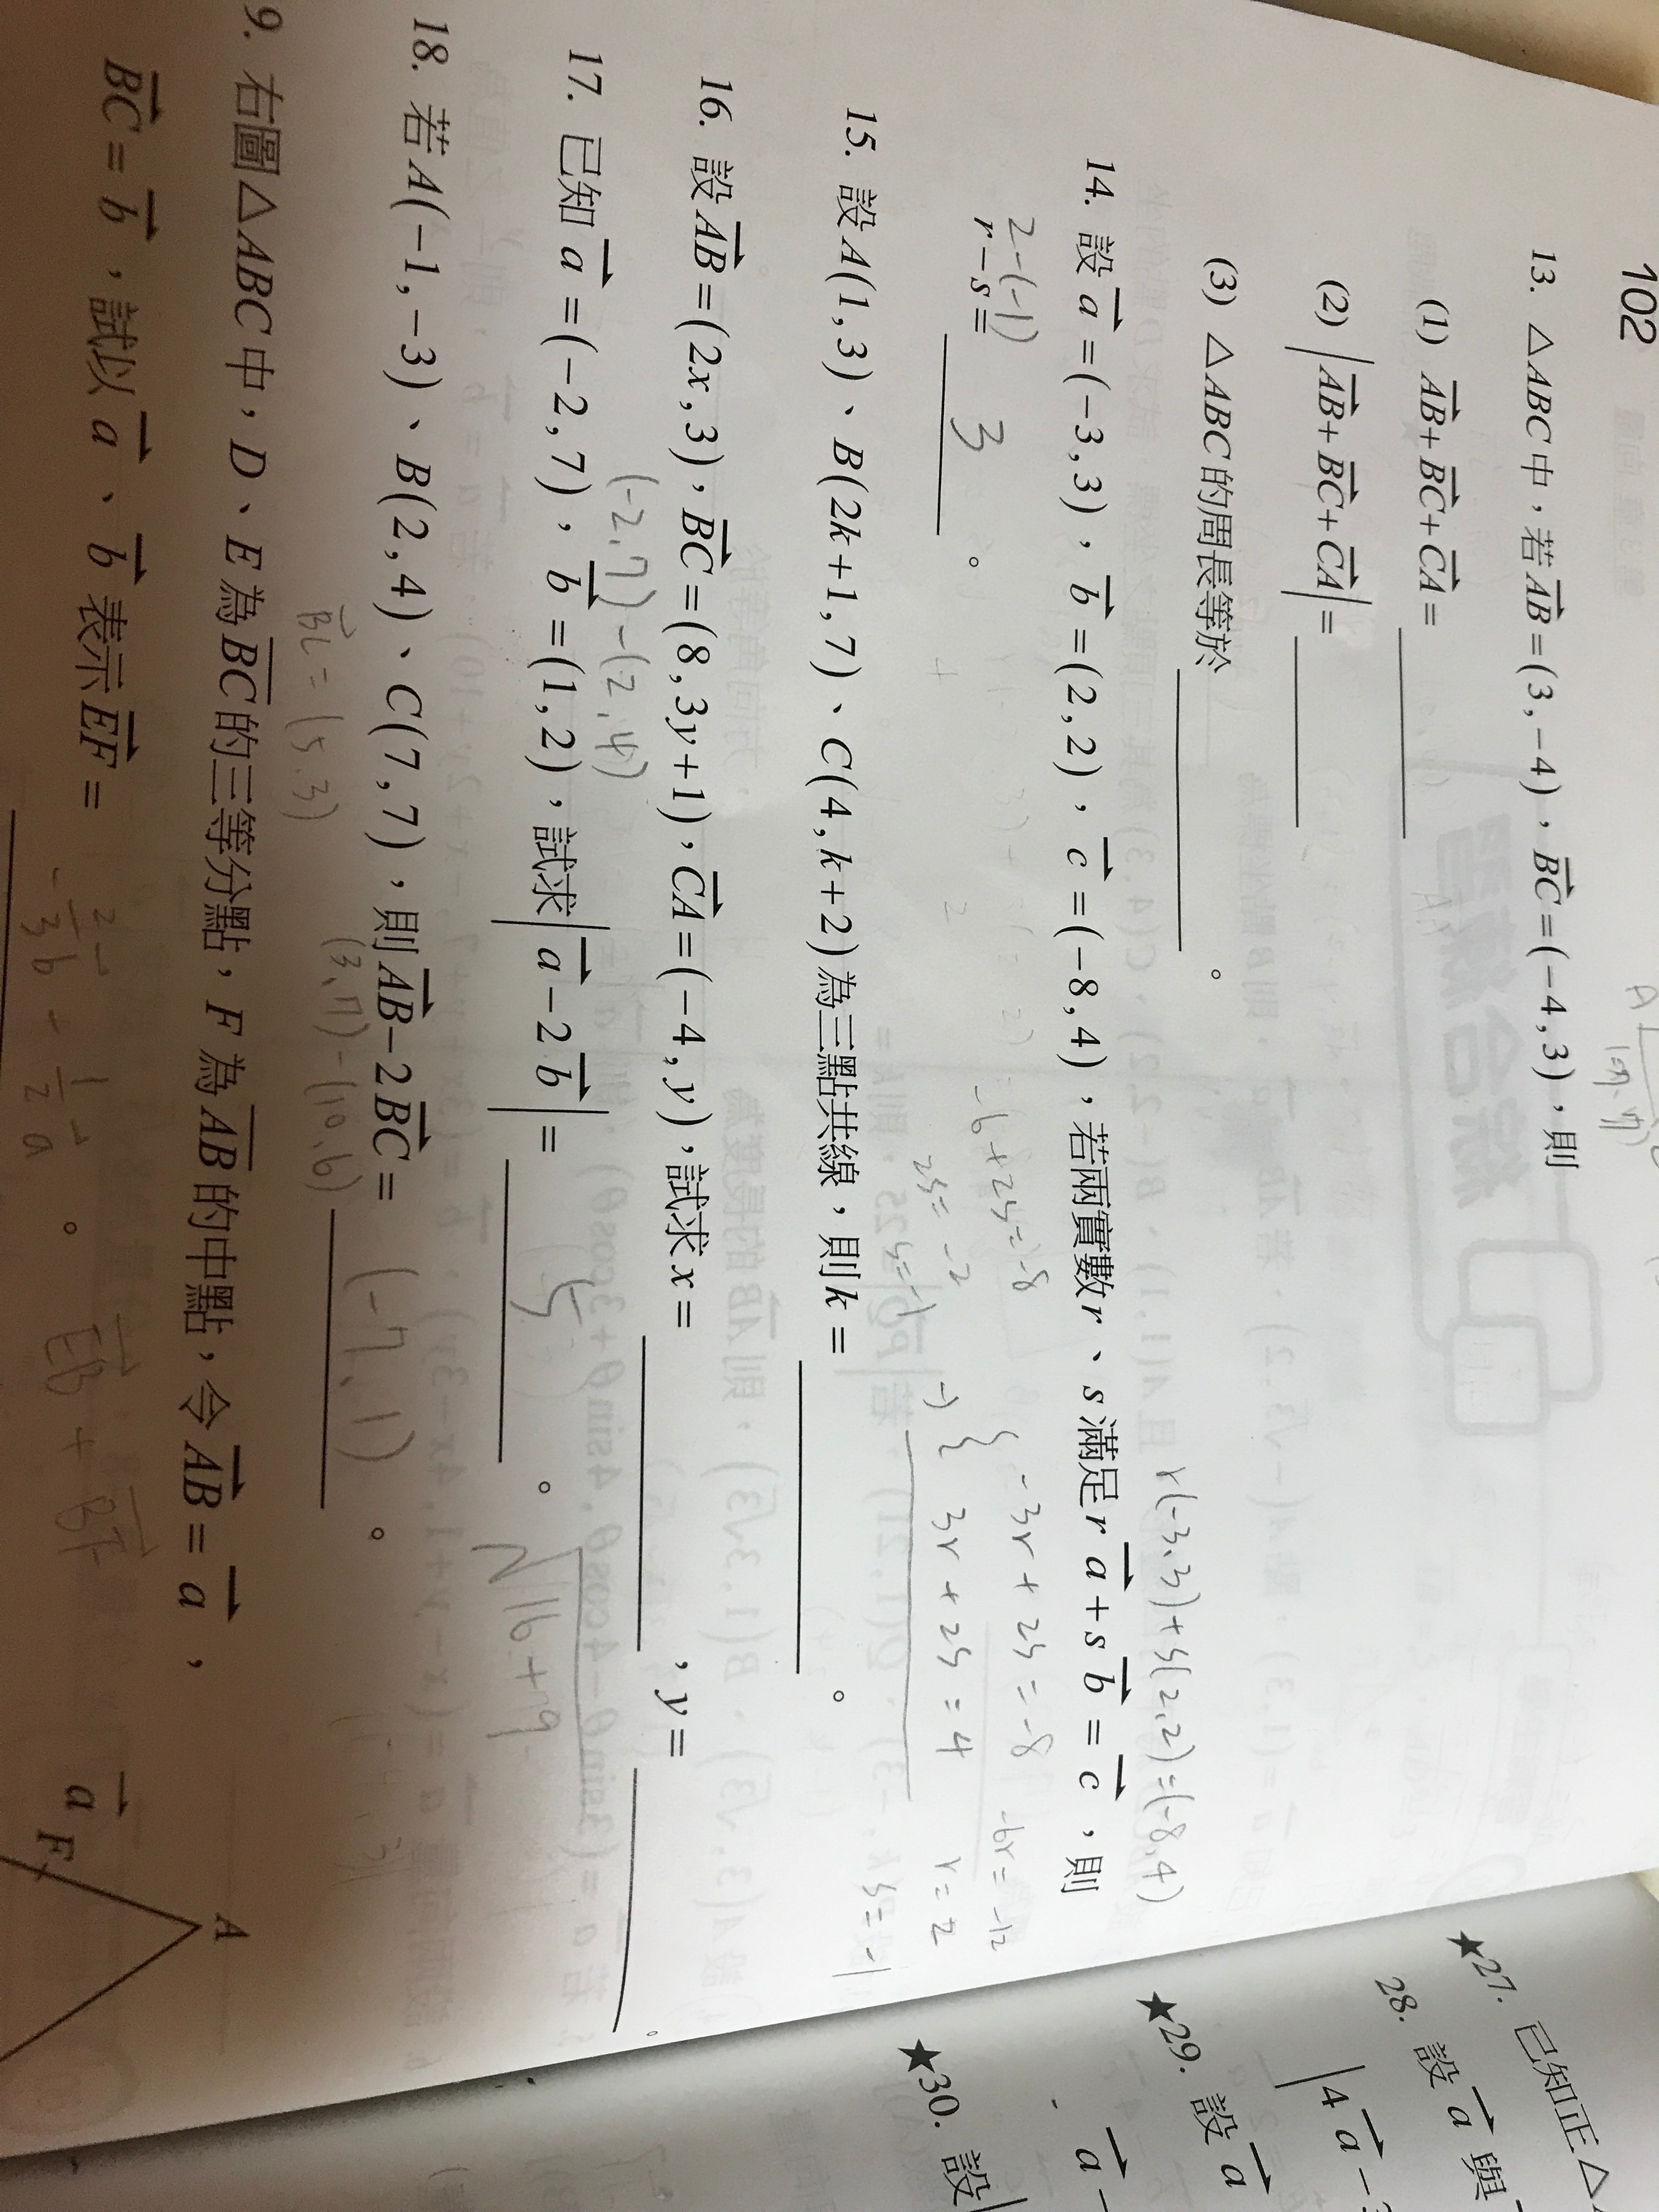 102
13. △ABC中，若AB=(3,-4)，BC=(-4,3)，則
(1) AB+BC+CA=
(2) |AB+BC+CA|=
(3) △ABC的周長等於 。
r(-3,3)+s(2,2)=(-8,4)
14. 設a=(-3,3)，b=(2,2)，c=(-8,4)，若兩實數r、s滿足ra+sb=c，則
2-(-1)
r-s= 3 。
-6+2s=-8
2s=-2
s=-1
-3r+2s=-8
-) { 3r+2s=4
-6r=-12
r=2
s=-1
15. 設A(1,3)、B(2k+1,7)、C(4,k+2)為三點共線，則k= 。
16. 設AB=(2x,3)，BC=(8,3y+1)，CA=(-4,y)，試求x= ，y= 。
(-2,7)-(2,4)
17. 已知a=(-2,7)，b=(1,2)，試求|a-2b|= 5 。
√16+9
18. 若A(-1,-3)、B(2,4)、C(7,7)，則AB-2BC= (-7,1) 。
BC=(5,3)
(3,7)-(10,6)
9. 右圖△ABC中，D、E為BC的三等分點，F為AB的中點，令AB=a，
BC=b，試以a、b表示EF= 。
-2/3 b - 1/2 a
EB+BF
a
F
A
★27. 已知正△
28. 設a與
|4a-
★29. 設a
a-
★30. 設|